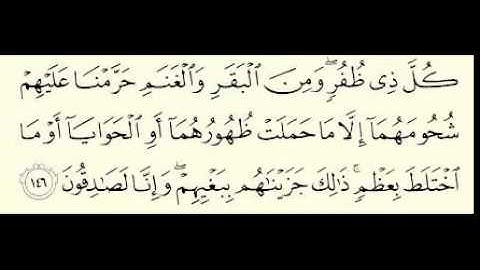 كُلَّ ذِى ظُفُرٍۖ وَمِنَ ٱلْبَقَرِ وَٱلْغَنَمِ حَرَّمْنَا عَلَيْهِمْ
شُحُومَهُمَآ إِلَّا مَا حَمَلَتْ ظُهُورُهُمَآ أَوِ ٱلْحَوَايَآ أَوْ مَا
ٱخْتَلَطَ بِعَظْمٍۚ ذَٰلِكَ جَزَيْنَٰهُم بِبَغْيِهِمْۖ وَإِنَّا لَصَٰدِقُونَ ١٤٦